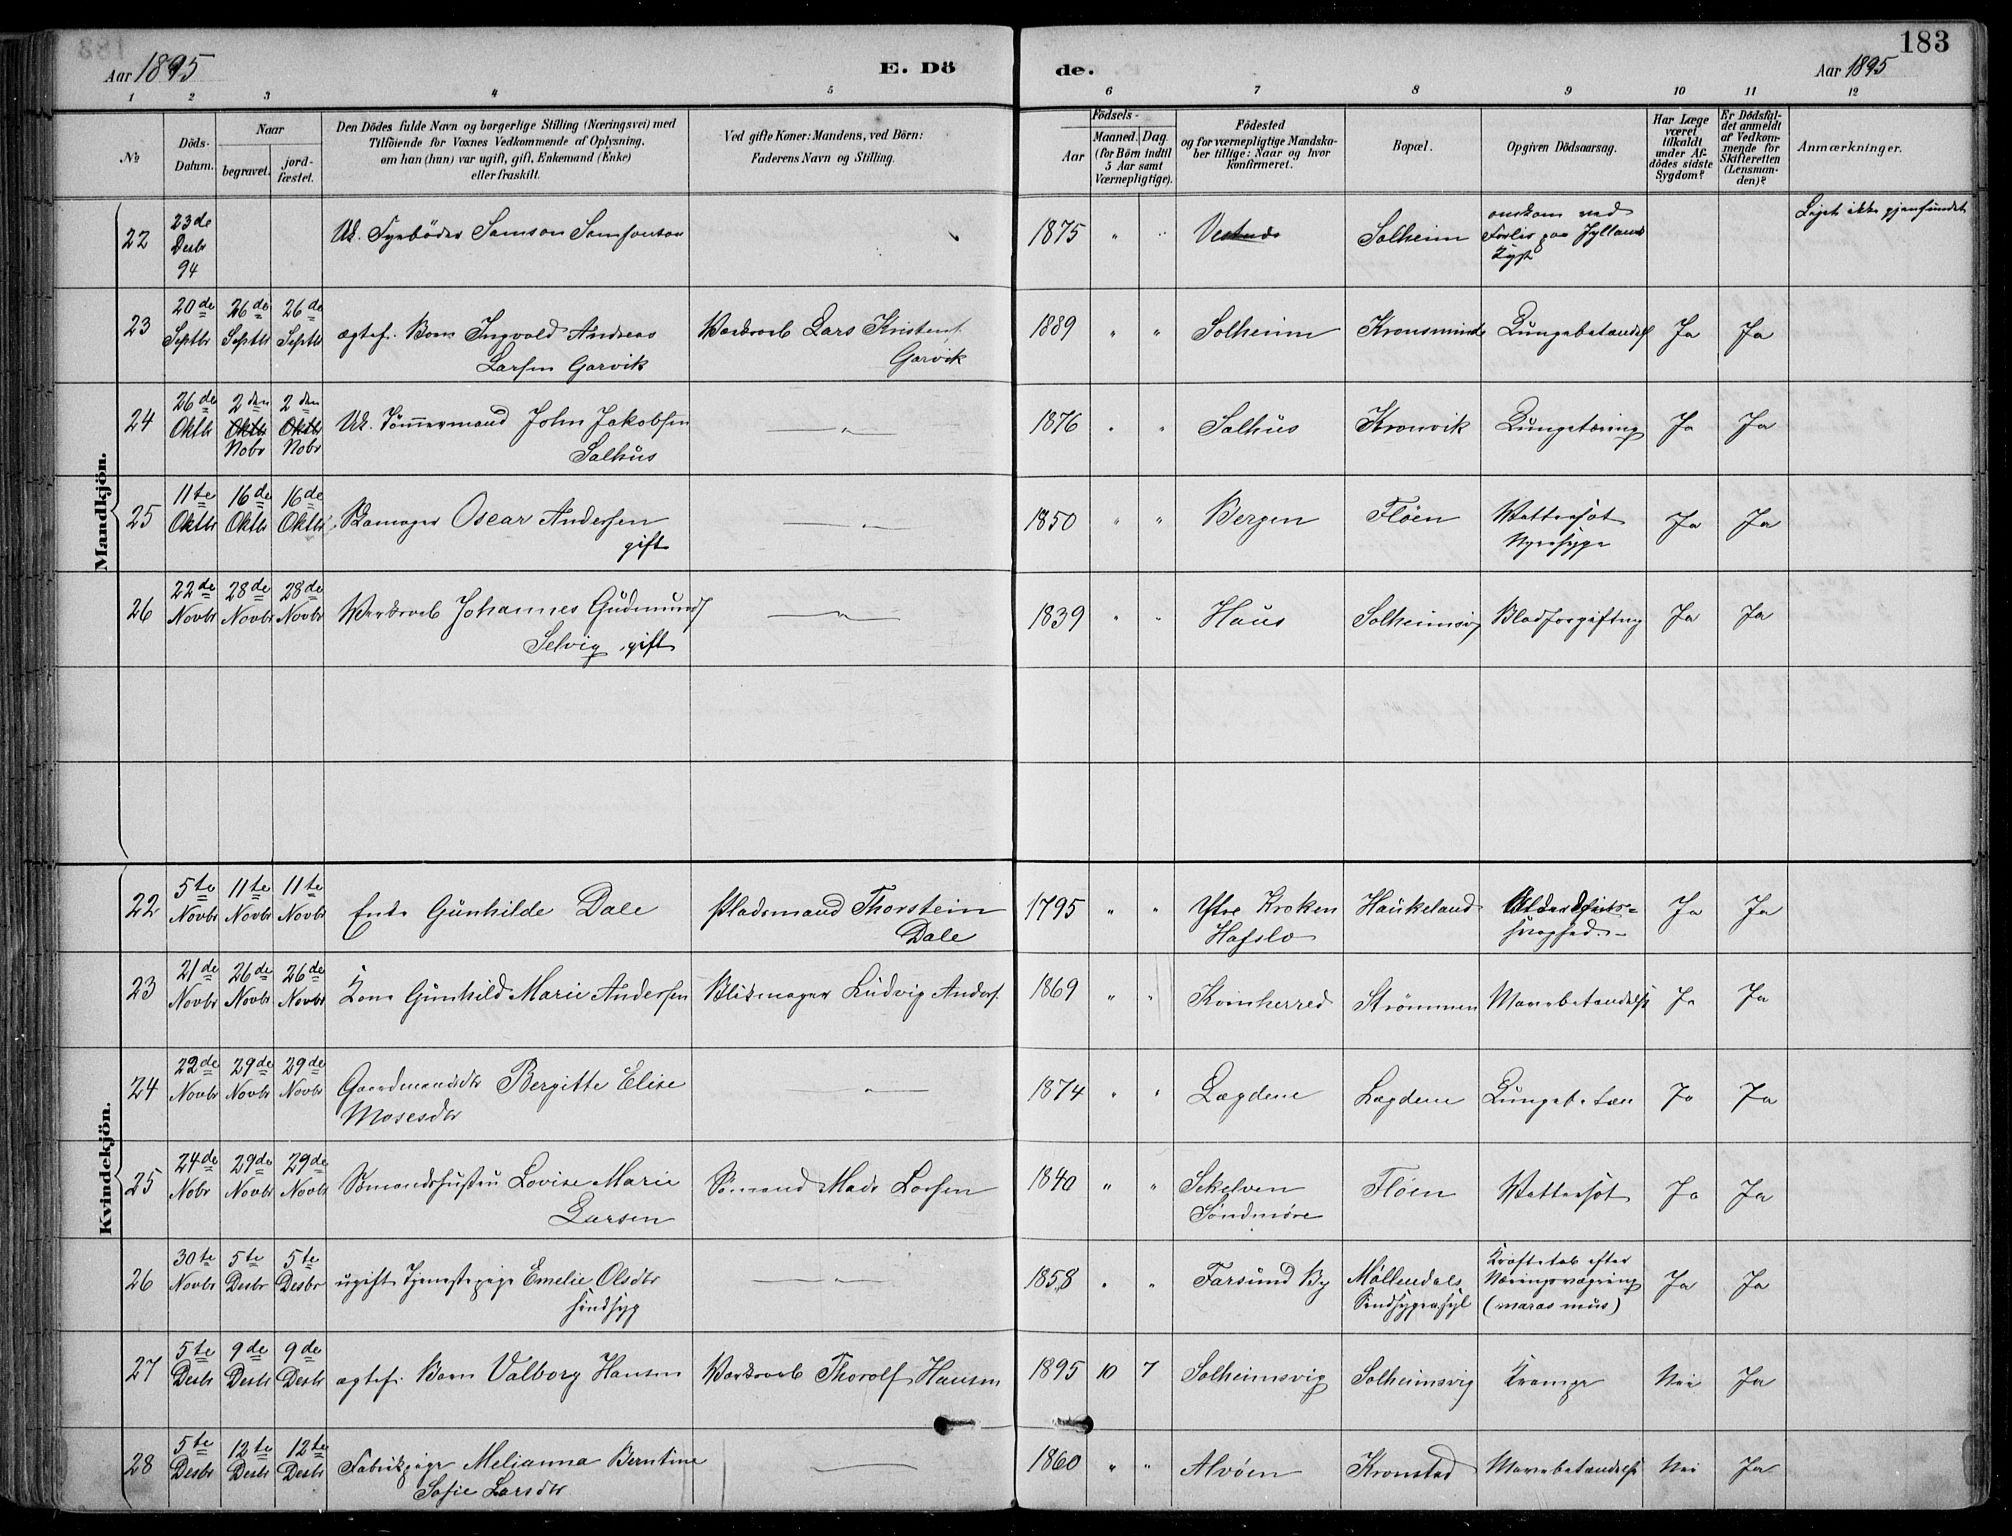 183
Aar 1895
E. Dö
de.
Aar 1895
1 2 3 4 5 6 7 8 9 10 11 12
No
Döds-
Datum.
Naar
begravet.
jord-
fæstet.
Den Dödes fulde Navn og borgerlige Stilling (Næringsvei) med
Tilföiende for Voxnes Vedkommende af Oplysning,
om han (hun) var ugift, gift, Enkemand (Enke)
eller fraskilt.
Ved gifte Koner: Mandens, ved Börn:
Faderens Navn og Stilling.
Födsels-
Aar
Maaned. Dag.
(for Börn indtil
5 Aar samt
Værnepligtige).
Födested
og for værnepligtige Mandska-
ber tillige: Naar og hvor
konfirmeret.
Bopæl.
Opgiven Dödsaarsag.
Har Læge
været
tilkaldt
under Af-
dödes sidste
Sygdom?
Er Dödsfal-
det anmeldt
af Vedkom-
mende for
Skifteretten
(Lensman-
den)?
Anmærkninger.
Mandkjön.
22 23de Desbr 94 Uk. Fyrböder Samson Samsonson 1875 " " Solheim omkom ved Forlis paa Jyllands Kyst Liget ikke gjenfundet
23 20de Septbr 26de Septbr 26de Septbr ægtef. Barn Ingvald Andreas
Larsen Garvik Værksarb Lars Kristens. Garvik 1889 " " Solheim Kronsminde Lungebetændels Ja Ja
24 26de Oktbr 2den Oktb Nobr 2den Oktb Nobr Uk. Tömmermand John Jakobsen
Salhus — " — 1876 " " Salhus Kronvik Lungetæring Ja Ja
25 11te Oktbr 16de Oktbr 16de Oktbr Skomager Oscar Andersen
gift — " — 1850 " " Bergen Flöen Vattersot
Nyresyge Ja Ja
26 22de Novbr 28de Novbr 28de Novbr Værksarb Johannes Gudmunds
Selvig gift — " — 1839 " " Haus Solheimsvg Blodforgiftning Ja Ja
Kvindekjön.
22 5te Novbr 11te Novbr 11te Novbr Enke Gunhilde Dale Pladsmand Thorstein
Dale 1795 " " Ytre Kroken
Hafslo Haukeland Alderdoms-
svaghed Ja Ja
23 21de Novbr 26de Novbr 26de Novbr Kone Gunhild Marie Andersen Blikmager Ludvig Anders. 1869 " " Kvinherred Strömmen Mavebetændelse Ja Ja
24 22de Novbr 29de Novbr 29de Novbr Gaardmandsdtr Bergitte Elise
Mosesdtr — " — 1874 " " Lægdene Lægdene Lungebetæn Ja Ja
25 24de Nobr 29de Novbr 29de Novbr Sömandshustru Lovise Marie
Larsen Sömand Mads Larsen 1840 " " Sekelven
Söndmöre Flöen Vattersot Ja Ja
26 30te Novbr 5te Desbr 5te Desbr ugift Tjenestepige Emelie Olsdtr
sindsyg — " — 1858 " " Farsund By Möllendals
Sindsygeasyl Kraftetab efter
Næringsvægring
(marasmus) Ja Ja
27 5te Desbr 9de Desbr 9de Desbr ægtef. Barn Valborg Hansen Værksarb Thorolf Hansen 1895 10 7 Solheimsvig Solheimsvig Krampe Nei Ja
28 5te Desbr 12te Desbr 12te Desbr Fabrikpige Melianna Berntine
Sofie Larsdtr — 1860 " " Alvöen Kronstad Mavebetændelse Nei Ja